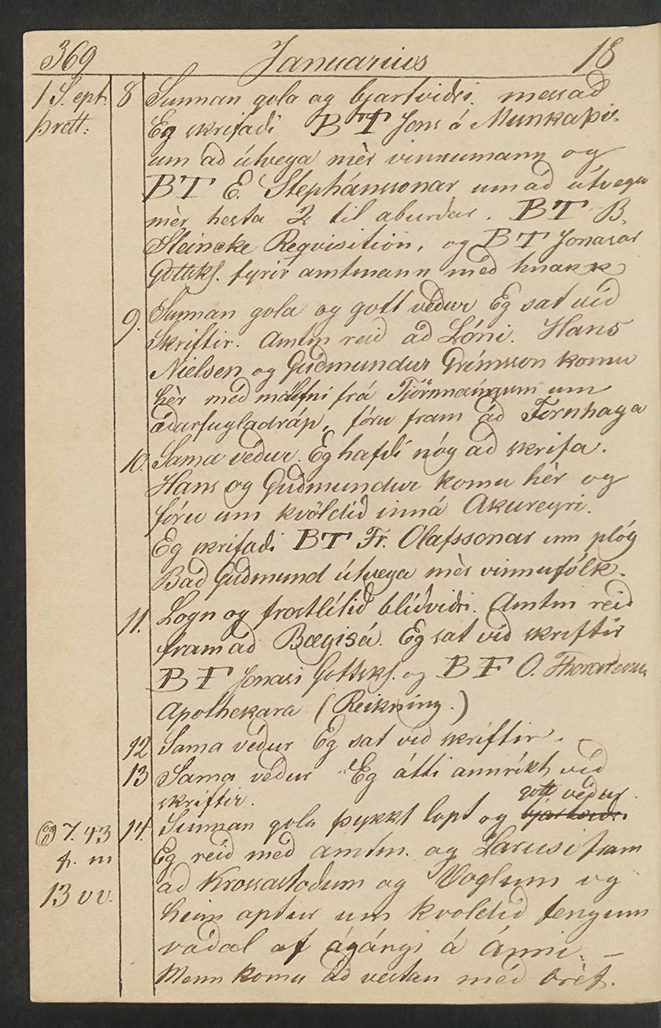 369 Januarius 18
1 S. ept. 8 Sunnan gola og bjartvidri. messad
þrett: Eg skrifadi BT Jons á Munkaþv.
um ad útvega mèr vinnumann og
BT E. Stephánssonar um ad útvega
mèr hesta 2 til aburdar. BT B.
Steincke Reqvisition, og BT Jonasar
Gottskf. fyrir amtmann med hnakk
9. Sunnan gola og gott vedur Eg sat vid
Skriftir. Amtm reid ad Lóni. Hans
Nielsen og Gudmundur Grímsson komu
hèr med málefni frá um
ædarfugladráp, fóru fram ad Fornhaga
10. Sama vedur. Eg hafdi nóg ad skrifa.
Hans og Gudmundur komu hèr og
fóru um kvöldid inná Akureyri.
Eg skrifadi BT Fr. Olafssonar um plóg
Bad Gudmund útvega mèr vinnufólk.
11. Logn og frostlitid blidvidri. Amtm reid
fram ad Bægisá. Eg sat vid skriftir
BT Jonasi Gottskf. og BF O. Thorarensen
Apothekara (Reikning.)
12 Sama vedur Eg sat vid skriftir.
13 Sama vedur Eg átti annríkt vid
skriftir. gott vedur
7.43 14. Sunnan gola þykkt lopt og
f. m Eg reid med amtm. og Larusi fram
13 vv. ad Krossastodum og Vöglum og
heim aptur um kvoldid fengum
vadal af ágángi á ánni. –
Menn komu ad vestan med brèf.